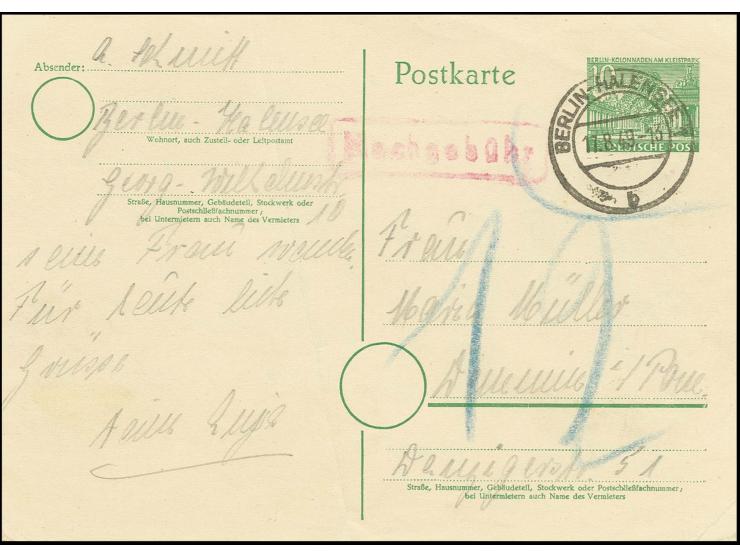 Absender: A. Schmitt
Berlin-Halensee
Wohnort, auch Zustell- oder Leitpostamt
Georg-Wilhelmstr.
18
Straße, Hausnummer, Gebäudeteil, Stockwerk oder
Postschließfachnummer;
bei Untermietern auch Name des Vermieters
seine Frau
Für heute liebe
Grüsse
Deine
Postkarte
Nachgebühr
BERLIN-KOLONNADEN AM KLEISTPARK
10
DEUTSCHE POST
BERLIN-HALENSEE
17.8.49.-13
b
12
Frau
Maria Müller
Demmin i/Pom.
Danzigerstr. 51
Straße, Hausnummer, Gebäudeteil, Stockwerk oder Postschließfachnummer;
bei Untermietern auch Name des Vermieters